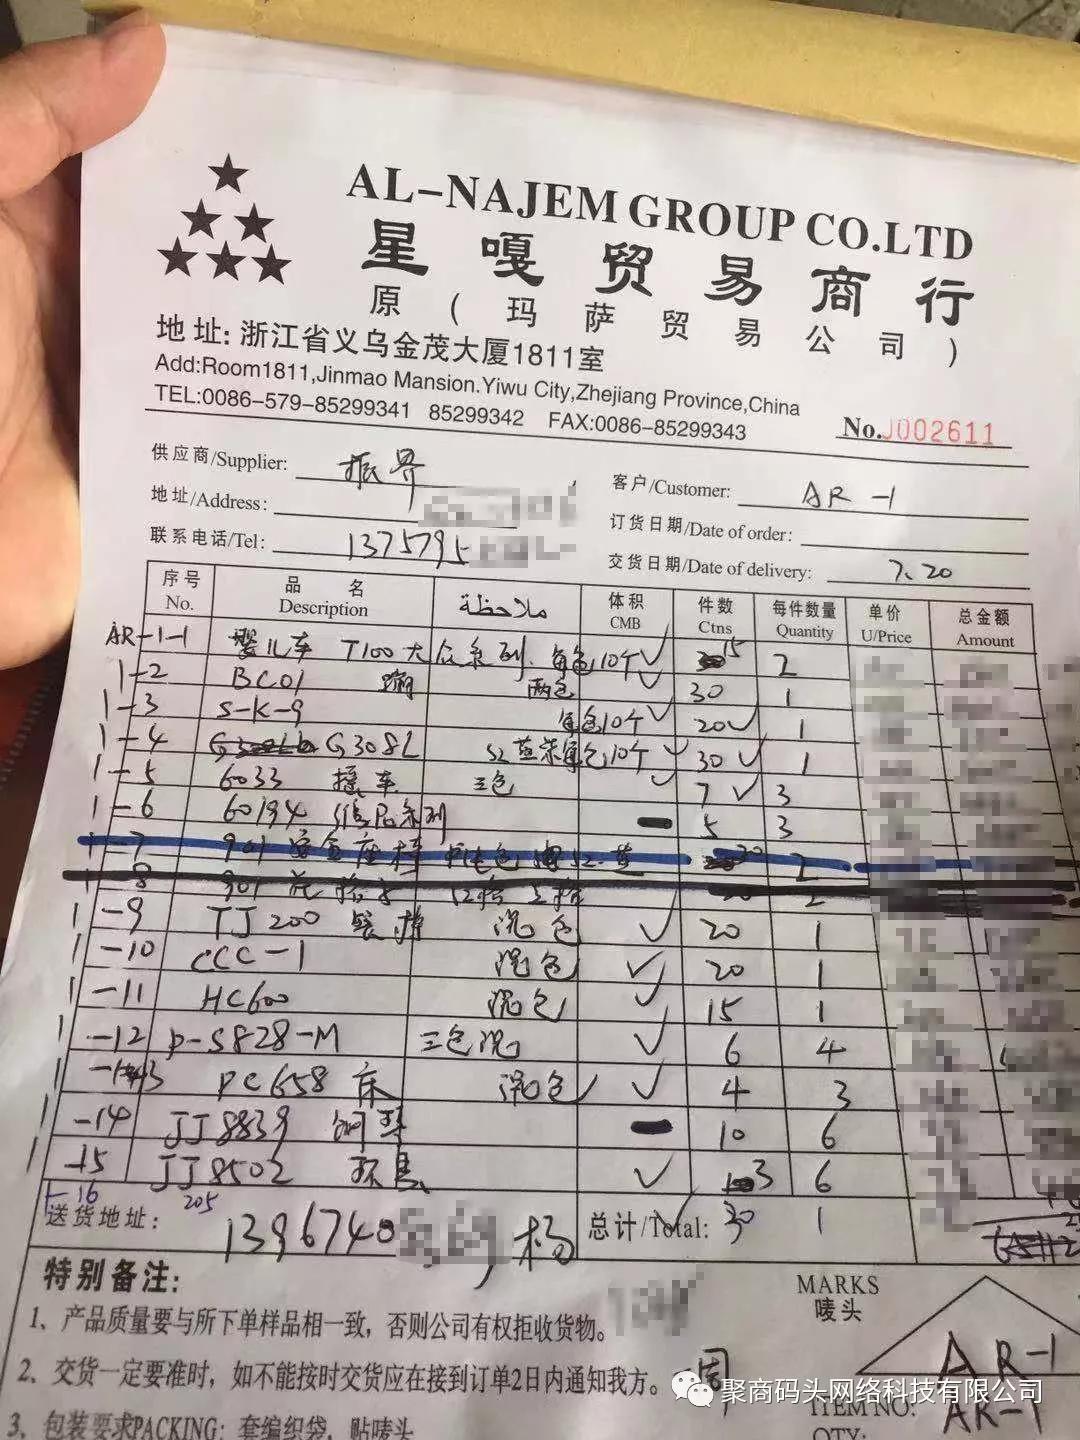 AL-NAJEM GROUP CO.LTD
星嘎贸易商行
原(玛萨贸易公司)
地址:浙江省义乌金茂大厦1811室
Add:Room1811,Jinmao Mansion.Yiwu City,Zhejiang Province,China
TEL:0086-579-85299341 85299342 FAX:0086-85299343
No.J002611
供应商/Supplier: 振界
客户/Customer: AR-1
地址/Address:
订货日期/Date of order:
联系电话/Tel: 1375795
交货日期/Date of delivery: 7.20
序号 品名 ملاحظة 体积 件数 每件数量 单价 总金额
No. Description CMB Ctns Quantity U/Price Amount
AR-1-1 婴儿车 T100大众系列. 每色10个 ✓ 15 2
1-2 BC01 两色 ✓ 30 1
1-3 S-K-9 每色10个 ✓ 20 ✓ 1
1-4 G308L 每色10个 ✓ 30 ✓ 1
1-5 6033 摇车 三色 ✓ 7 ✓ 3
1-6 60194 系列 5 3
1-7 901 安全座椅 20 2
1-8 901 2
1-9 TJ200 餐椅 混色 ✓ 20 1
1-10 CCC-1 混色 ✓ 20 1
1-11 HC600 混色 ✓ 15 1
1-12 P-S828-M 三色混 ✓ 6 4
1-13 PC658 床 混色 ✓ 4 3
1-14 JJ8839 钢琴 10 6
1-15 JJ8502 ✓ 3 6
1-16 205 ✓ 30 1
送货地址: 1396740 杨 总计/Total:
特别备注:
MARKS
唛头
1、产品质量要与所下单样品相一致，否则公司有权拒收货物。
2、交货一定要准时，如不能按时交货应在接到订单2日内通知我方。
AR-1
3、包装要求PACKING: 套编织袋，贴唛头
ITEM NO: AR-1
QTY:
聚商码头网络科技有限公司